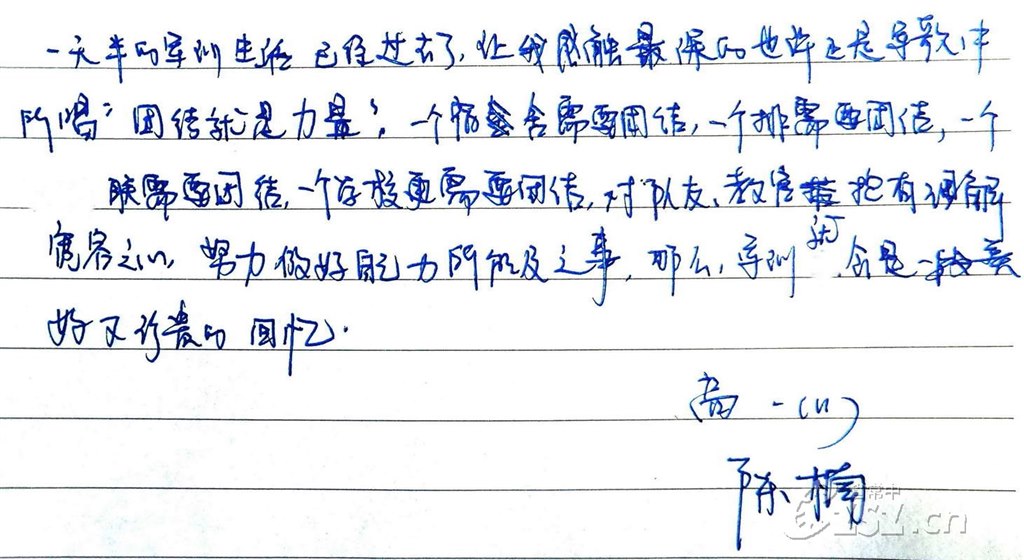 一天半的军训生活已经过去了,让我感触最深的也许还是军歌中
所唱“团结就是力量”。一个宿舍需要团结,一个排需要团结,一个
连需要团结,一个学校更需要团结,对队友、教官抱有理解
宽容之心,努力做好自己力所能及之事,那么,军训就会是一段美
好又珍贵的回忆.
高一(11)
陈楠